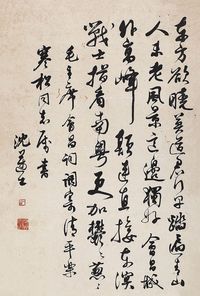 東方欲曉莫道君行早踏遍青山
人未老風景這邊獨好會昌城
外高峰顛連直接東溟
戰士指看南粵更加鬱〻蔥〻
毛主席會昌詞調寄清平樂
寒松同志屬書
沈尹默